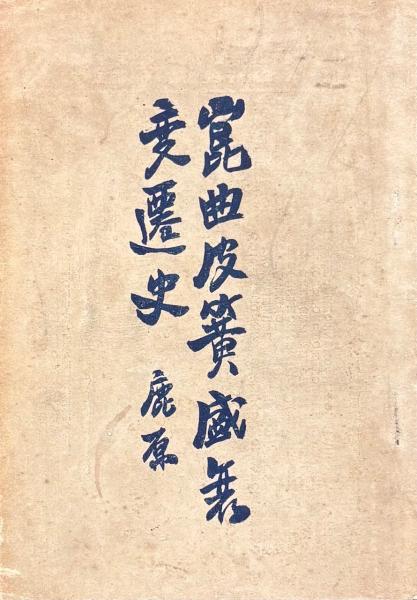 崑曲皮簧盛衰
变遷史
鹿原